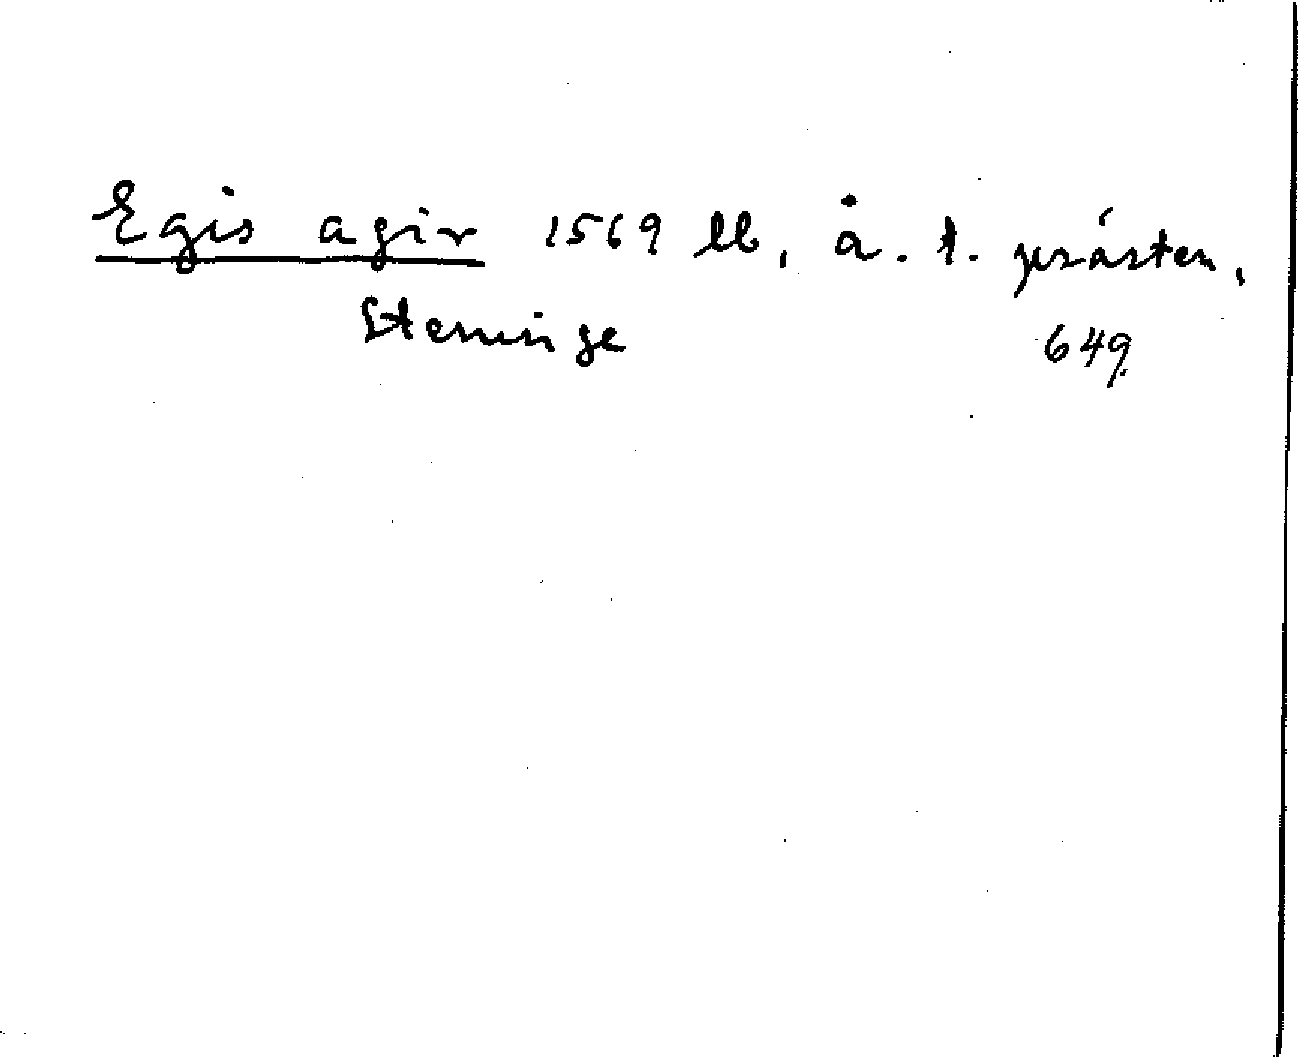 Egis agir 1569 lb, å. t. prästen,
Steninge 649.